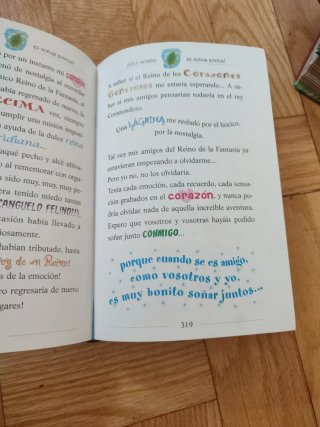 ES SOÑAR JUNTOS!
mi corazón
mó de nostalgia al recordar
tico Reino de la Fantasía, al
abía regresado de nuevo, la
ÉCIMA vez, siempre
umplir una misión impor
ayuda de la dulce reina
ridiana...
aqué pecho y alcé altiva
o al rememorar con orgu
ía sido muy, muy, muy pe
era tenido miedo tantas
CANGUELO FELINO!!!),
casión había llevado a
iosamente.
habían tributado, hasta
ey de un Reino!
s de la emoción!
ro regresaría de nuevo
gares!
¡QUÉ BONITO
ES SOÑAR JUNTOS!
A saber si el Reino de los Corazones
Generosos me estaría esperando... A sa-
ber si mis amigos pensarían todavía en my
Comandoro.
Una LÁGRIMA me resbaló por el hocico-
por la nostalgia.
Tal vez mis amigos del Reino de la Fantasía ya
estuvieran empezando a olvidarme...
Pero yo no, no los olvidaría.
Tenía cada emoción, cada recuerdo, cada sensa-
ción grabados en el corazón, y nunca po-
dría olvidar nada de aquella increíble aventura.
Espero que vosotros y vosotras hayáis podido
soñar junto CONMIGO...
porque cuando se es amigo,
como vosotros y yo,
es muy bonito soñar juntos...
319